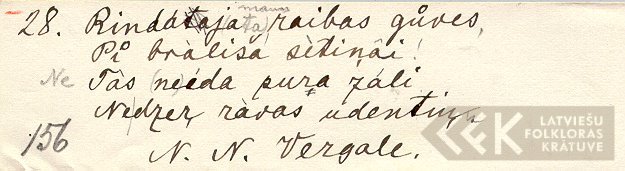 28. Rindâ raibas gůves,
Pŏ brâliša sètinâi!
Ne Tâs (ne) éda pura zâli,
Nedzeŗ râvas ûdentiņ
156 N. N. Vergale.
LATVIEŠU
FOLKLORAS
KRĀTUVE